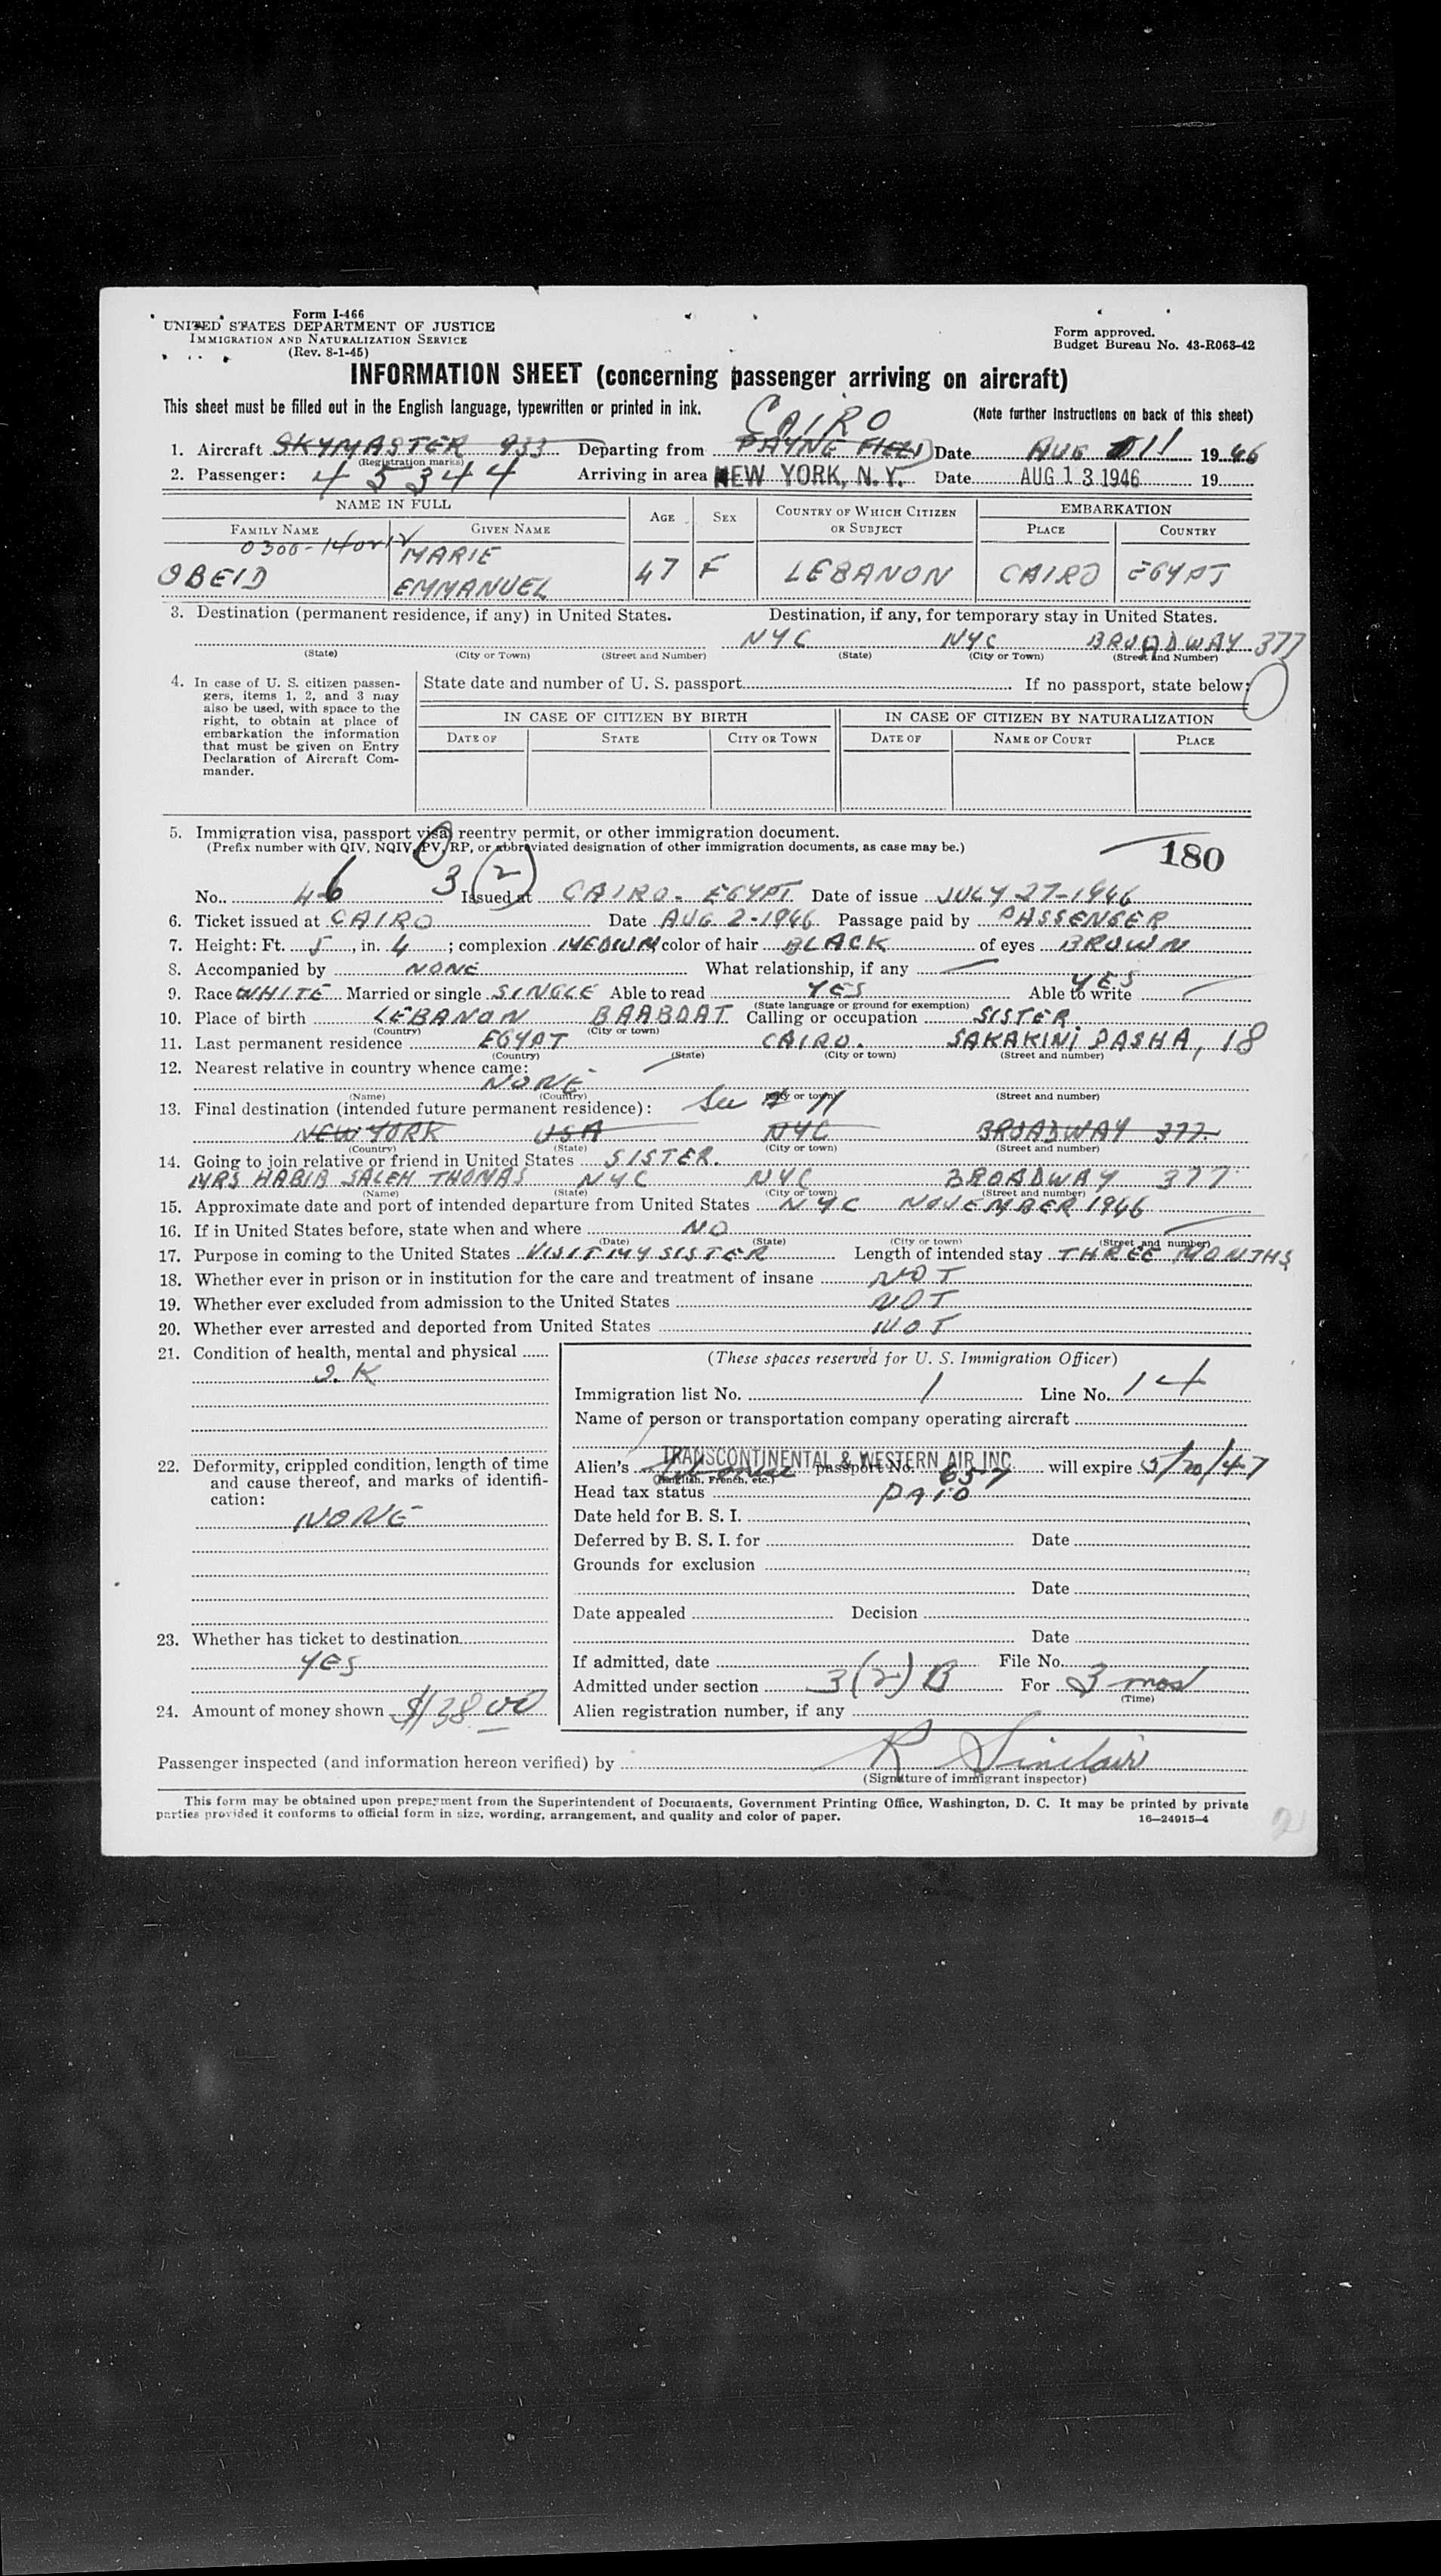 Form I-466
UNITED STATES DEPARTMENT OF JUSTICE
IMMIGRATION AND NATURALIZATION SERVICE
(Rev. 8-1-45)
Form approved.
Budget Bureau No. 43-R063-42
INFORMATION SHEET (concerning passenger arriving on aircraft)
This sheet must be filled out in the English language, typewritten or printed in ink.
(Note further instructions on back of this sheet)
CAIRO
1. Aircraft SKYMASTER 933 Departing from PAYNE FIELD Date AUG 11 1946
(Registration marks)
2. Passenger: 45344 Arriving in area NEW YORK, N.Y. Date AUG 13 1946 19
NAME IN FULL AGE SEX COUNTRY OF WHICH CITIZEN OR SUBJECT EMBARKATION
FAMILY NAME GIVEN NAME PLACE COUNTRY
0300-140212
OBEID MARIE EMMANUEL 47 F LEBANON CAIRO EGYPT
3. Destination (permanent residence, if any) in United States. Destination, if any, for temporary stay in United States.
NYC NYC BROADWAY 377
(State) (City or Town) (Street and Number) (State) (City or Town) (Street and Number)
4. In case of U. S. citizen passengers, items 1, 2, and 3 may also be used, with space to the right, to obtain at place of embarkation the information that must be given on Entry Declaration of Aircraft Commander.
State date and number of U. S. passport If no passport, state below:
IN CASE OF CITIZEN BY BIRTH IN CASE OF CITIZEN BY NATURALIZATION
DATE OF STATE CITY OR TOWN DATE OF NAME OF COURT PLACE
5. Immigration visa, passport visa, reentry permit, or other immigration document.
(Prefix number with QIV, NQIV, PV, RP, or abbreviated designation of other immigration documents, as case may be.)
180
3(2)
No. 46 Issued at CAIRO - EGYPT Date of issue JULY 27-1946
6. Ticket issued at CAIRO Date AUG 2-1946 Passage paid by PASSENGER
7. Height: Ft. 5, in. 4; complexion MEDIUM color of hair BLACK of eyes BROWN
8. Accompanied by NONE What relationship, if any
9. Race WHITE Married or single SINGLE Able to read YES Able to write YES
(State language or ground for exemption)
10. Place of birth LEBANON BAABDAT Calling or occupation SISTER
(Country) (City or town)
11. Last permanent residence EGYPT CAIRO. SAKAKINI PASHA, 18
(Country) (State) (City or town) (Street and number)
12. Nearest relative in country whence came:
NONE
(Name) (Country) (City or town) (Street and number)
13. Final destination (intended future permanent residence): See # 11
NEW YORK USA NYC BROADWAY 377
(Country) (State) (City or town) (Street and number)
14. Going to join relative or friend in United States SISTER.
MRS HABIB SALEH THOMAS NYC NYC BROADWAY 377
(Name) (State) (City or town) (Street and number)
15. Approximate date and port of intended departure from United States NYC NOVEMBER 1946
16. If in United States before, state when and where NO
(Date) (State) (City or town) (Street and number)
17. Purpose in coming to the United States VISIT MY SISTER Length of intended stay THREE MONTHS
18. Whether ever in prison or in institution for the care and treatment of insane NOT
19. Whether ever excluded from admission to the United States NOT
20. Whether ever arrested and deported from United States NOT
21. Condition of health, mental and physical
O.K
22. Deformity, crippled condition, length of time and cause thereof, and marks of identification:
NONE
23. Whether has ticket to destination
YES
24. Amount of money shown $138.00
(These spaces reserved for U. S. Immigration Officer)
Immigration list No. 1 Line No. 14
Name of person or transportation company operating aircraft
TRANSCONTINENTAL & WESTERN AIR INC
Alien's Lebanese passport No. 657 will expire 5/20/47
(English, French, etc.)
Head tax status PAID
Date held for B. S. I.
Deferred by B. S. I. for Date
Grounds for exclusion
Date
Date appealed Decision
Date
If admitted, date File No.
Admitted under section 3(2)B For 3 mos
(Time)
Alien registration number, if any
Passenger inspected (and information hereon verified) by R Sinclair
(Signature of immigrant inspector)
This form may be obtained upon prepayment from the Superintendent of Documents, Government Printing Office, Washington, D. C. It may be printed by private
parties provided it conforms to official form in size, wording, arrangement, and quality and color of paper.
16—24915-4
2